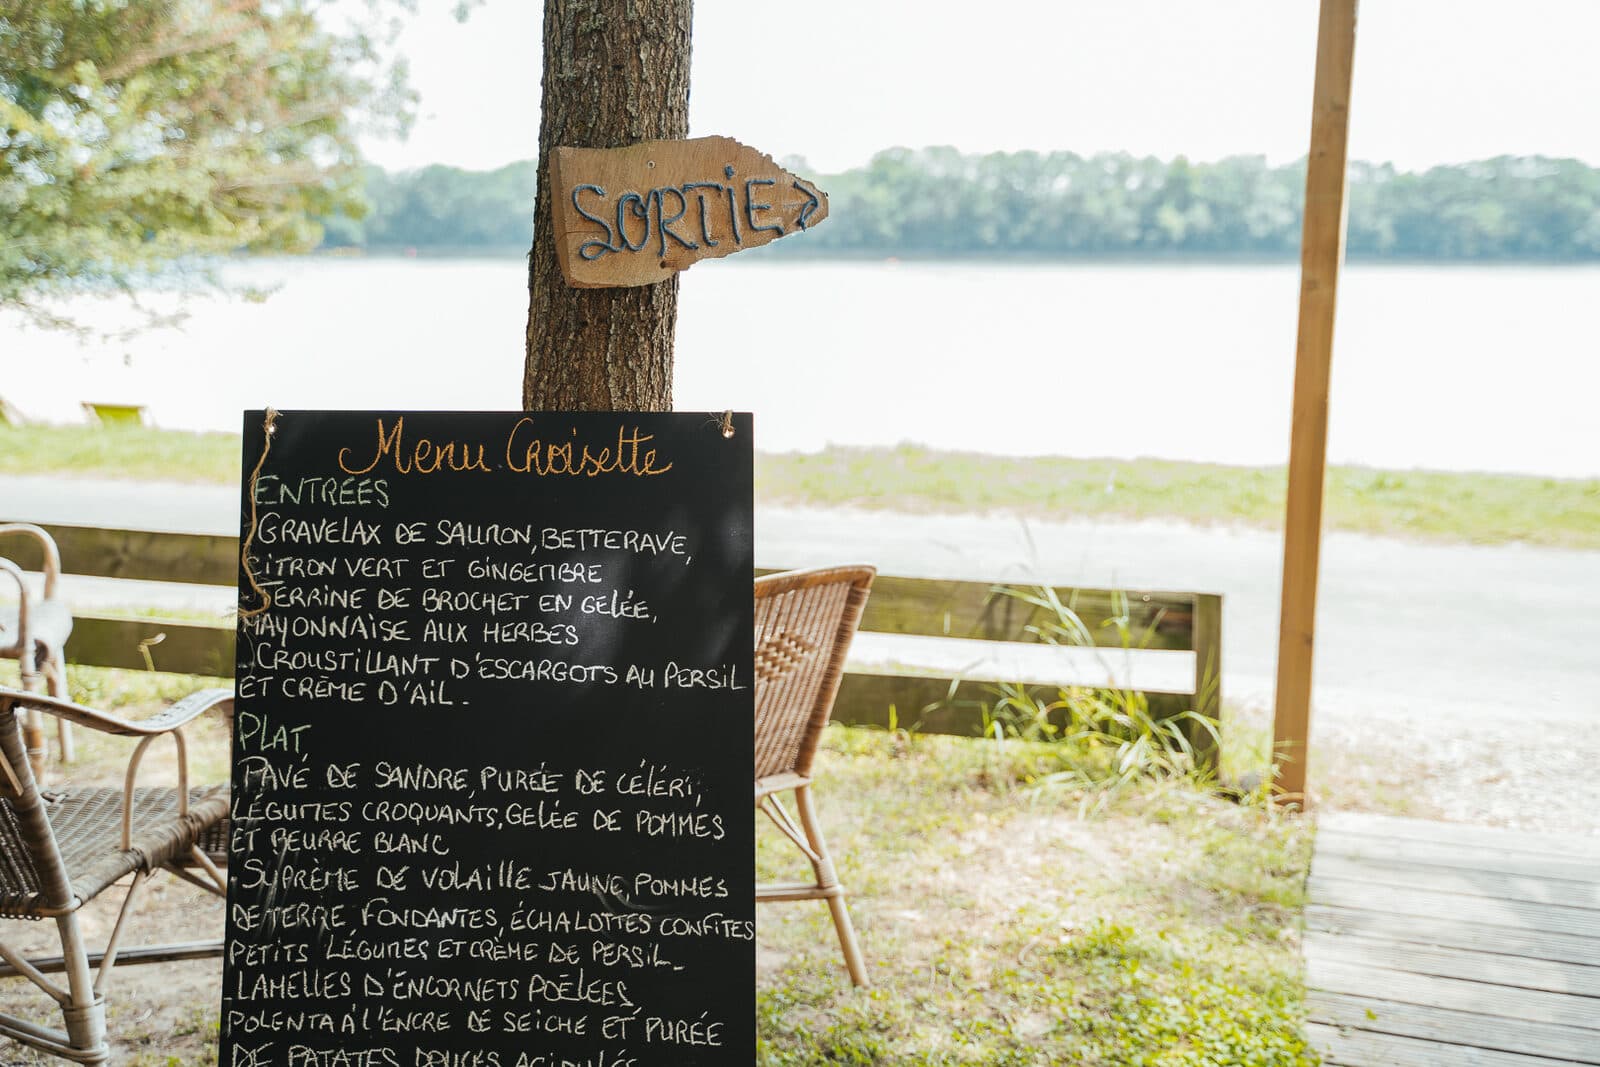 SORTIE
Menu Croisette
ENTRÉES
GRAVELAX DE SAUMON, BETTERAVE,
CITRON VERT ET GINGEMBRE
- TERRINE DE BROCHET EN GELÉE,
MAYONNAISE AUX HERBES
- CROUSTILLANT D'ESCARGOTS AU PERSIL
ET CRÈME D'AIL.
PLAT
- PAVÉ DE SANDRE, PURÉE DE CÉLÉRI,
LÉGUMES CROQUANTS, GELÉE DE POMMES
ET BEURRE BLANC
- SUPRÈME DE VOLAILLE JAUNE, POMMES
DE TERRE, FONDANTES, ÉCHALOTTES CONFITES
PETITS LÉGUMES ET CRÈME DE PERSIL.
- LAMELLES D'ENCORNETS POÊLEES,
POLENTA À L'ENCRE DE SEICHE ET PURÉE
DE PATATES DOUCES ACIDULÉE